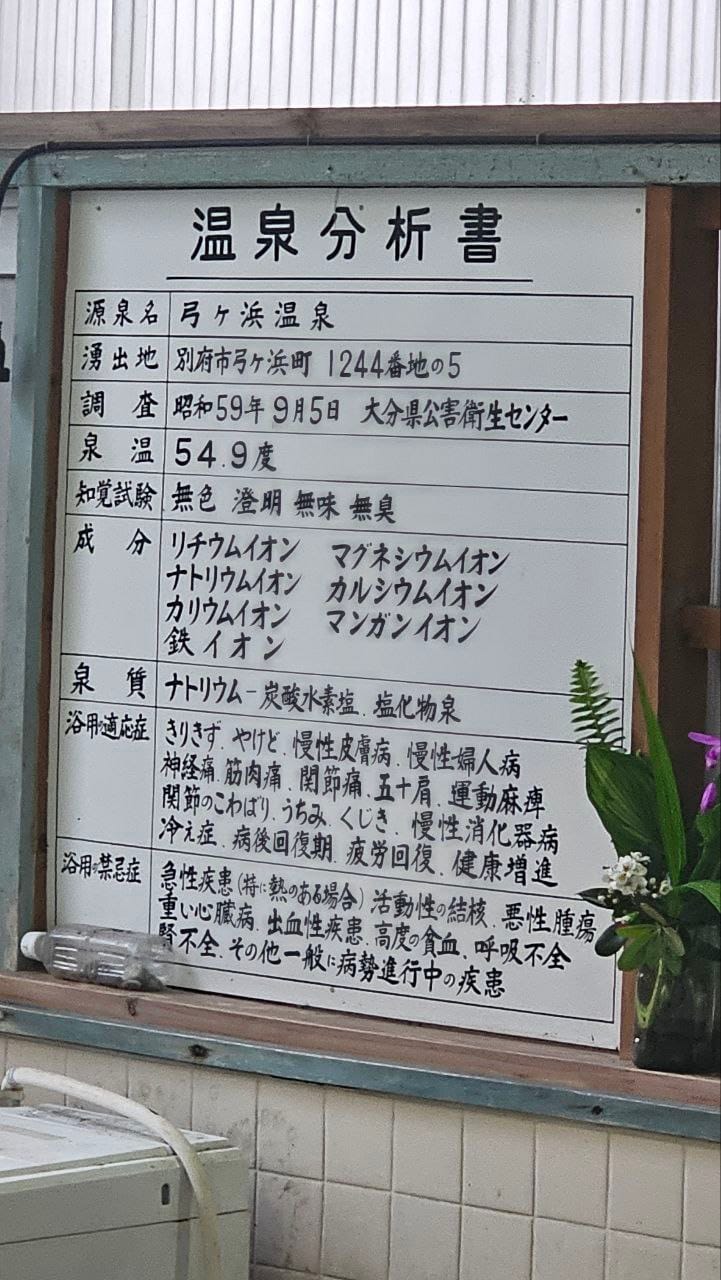 温泉分析書
源泉名 弓ヶ浜温泉
湧出地 別府市弓ヶ浜町 1244番地の5
調査 昭和59年9月5日 大分県公害衛生センター
泉温 54.9度
知覚試験 無色 澄明 無味 無臭
成分 リチウムイオン マグネシウムイオン
ナトリウムイオン カルシウムイオン
カリウムイオン マンガンイオン
鉄イオン
泉質 ナトリウム-炭酸水素塩、塩化物泉
浴用の適応症 きりきず、やけど、慢性皮膚病、慢性婦人病
神経痛、筋肉痛、関節痛、五十肩、運動麻痺
関節のこわばり、うちみ、くじき、慢性消化器病
冷え症、病後回復期、疲労回復、健康増進
浴用の禁忌症 急性疾患(特に熱のある場合)活動性の結核、悪性腫瘍
重い心臓病、出血性疾患、高度の貧血、呼吸不全
腎不全、その他一般に病勢進行中の疾患